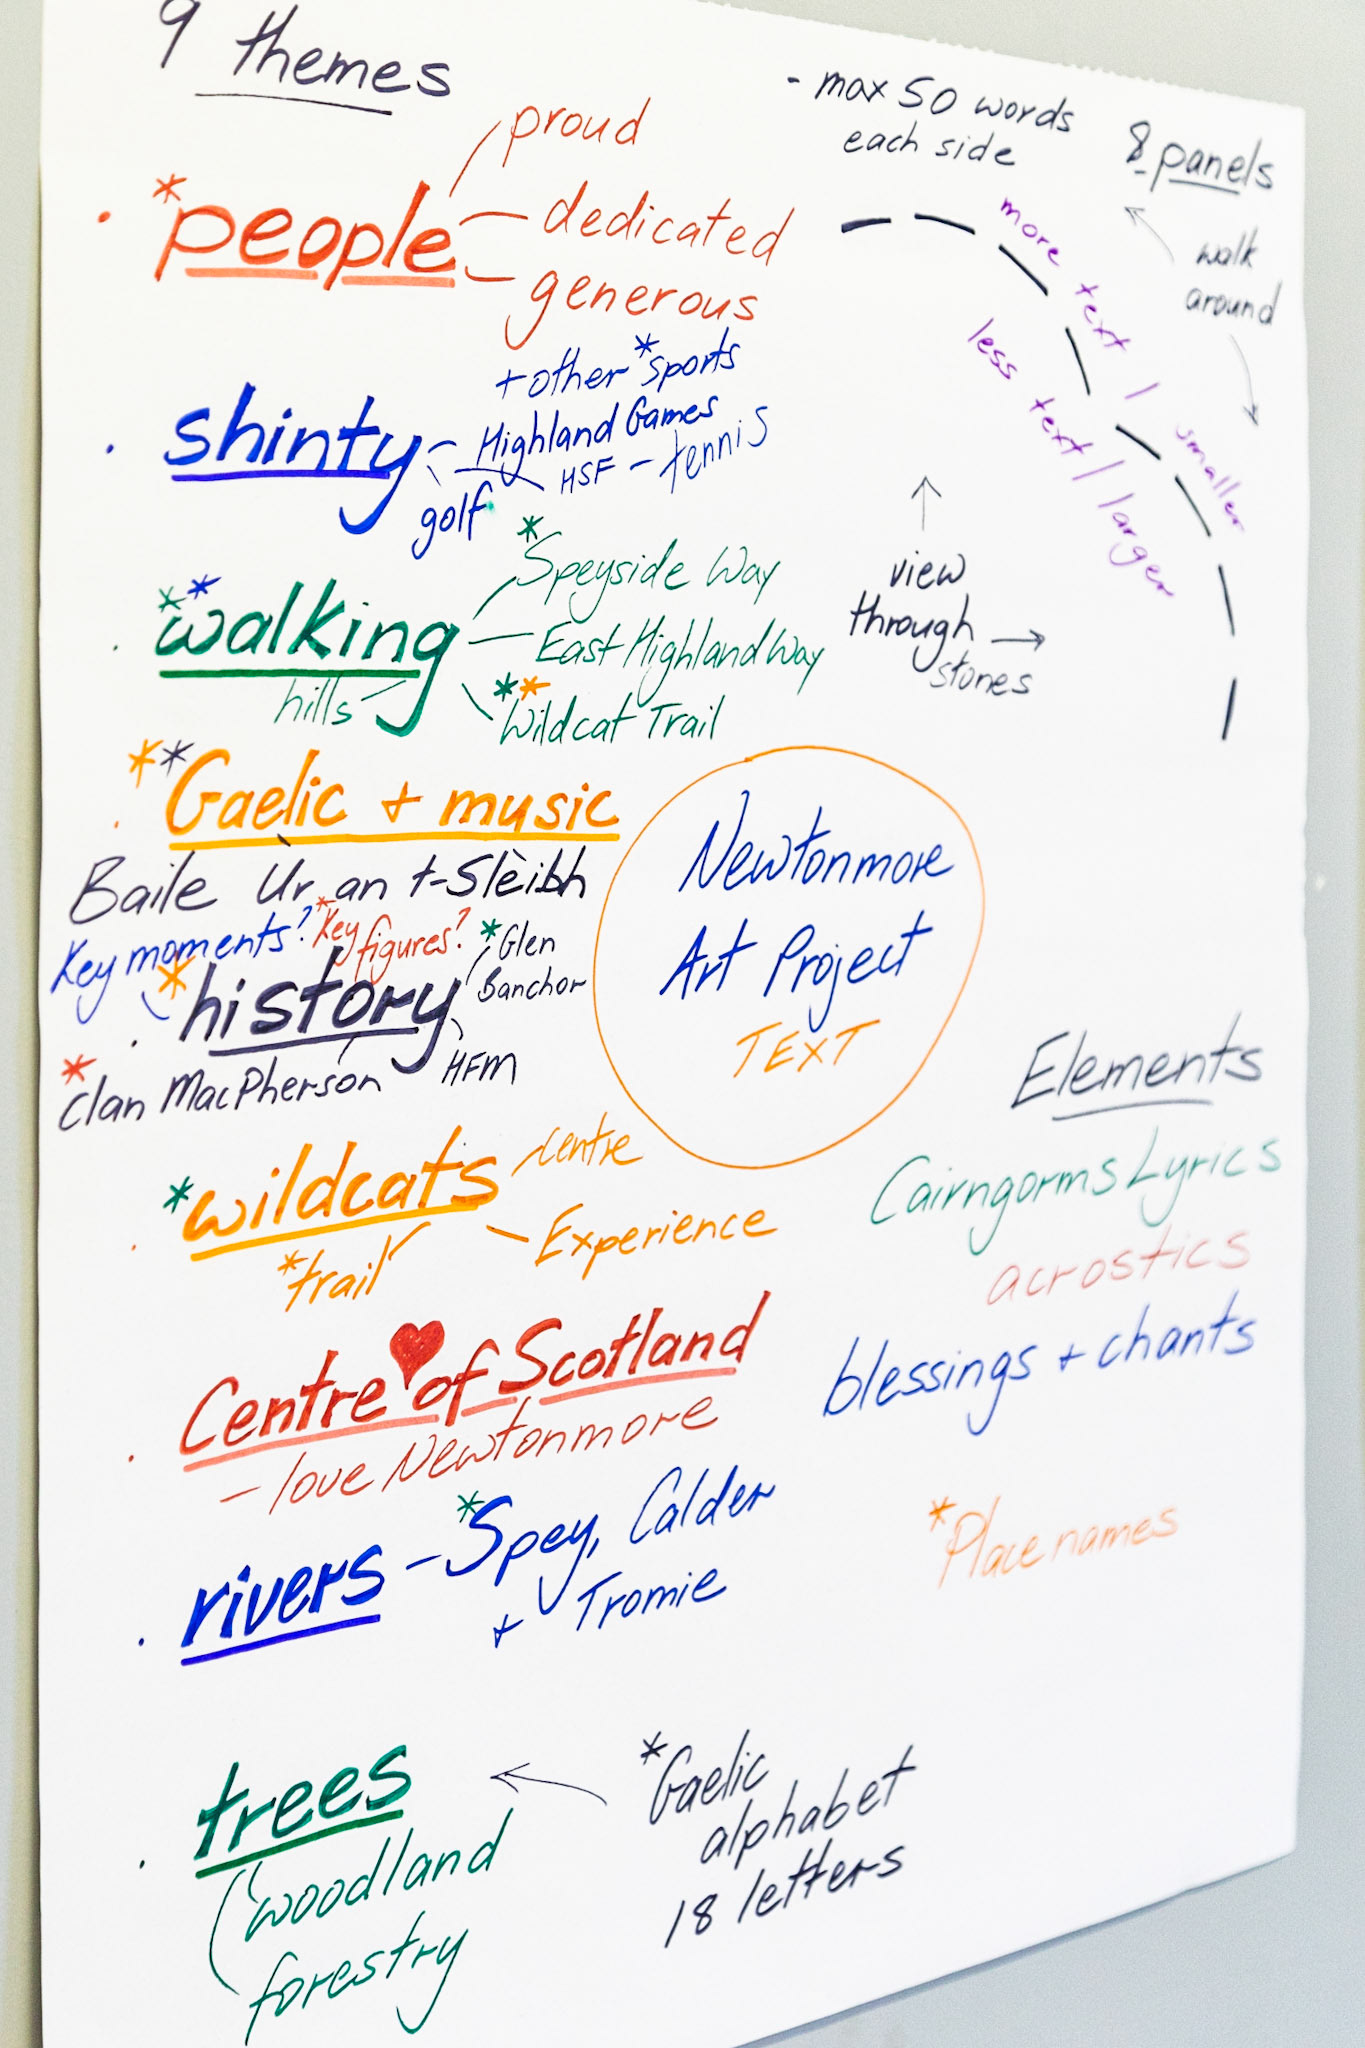 9 themes
- max 50 words
each side
8 panels
walk
around
more text / smaller
less text / larger
view
through
stones
* people
proud
dedicated
generous
shinty
+ other * sports
Highland Games
HSF - tennis
golf
** walking
* Speyside Way
East Highland Way
** Wildcat Trail
hills
** Gaelic + music
Baile Ùr an t-Slèibh
Key moments? * Key figures?
* history
* Glen
Banchor
HFM
* Clan MacPherson
Newtonmore
Art Project
TEXT
* wildcats
centre
Experience
* trail
Centre of Scotland
- love Newtonmore
rivers - * Spey, Calder
+ Tromie
trees
woodland
forestry
* Gaelic
alphabet
18 letters
Elements
Cairngorms Lyrics
acrostics
blessings + chants
* Place names